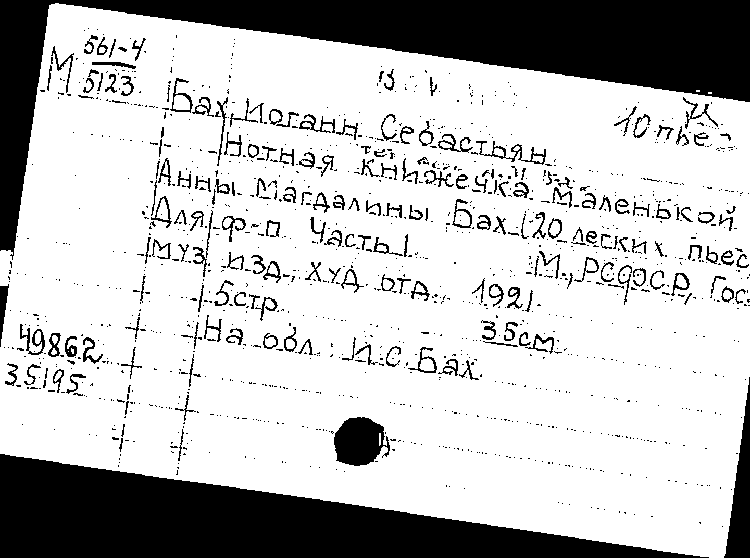 М 561-4
5123
10 пье-
Бах, Иоганн Себастьян
Нотная книжечка маленькой
Анны Магдалины Бах (20 легких пьес
Для ф-п Часть I
М., РСФСР, Гос.
муз. изд., худ отд., 1921.
5стр. 35см
На обл: И.С.Бах
49862
35195